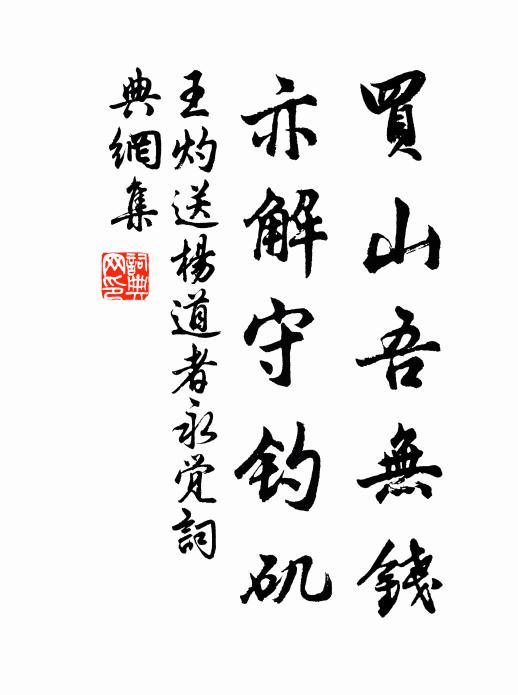 買山吾無錢
亦解守钓矶
王灼送楊道者永觉詞
典網集
詞典
网印